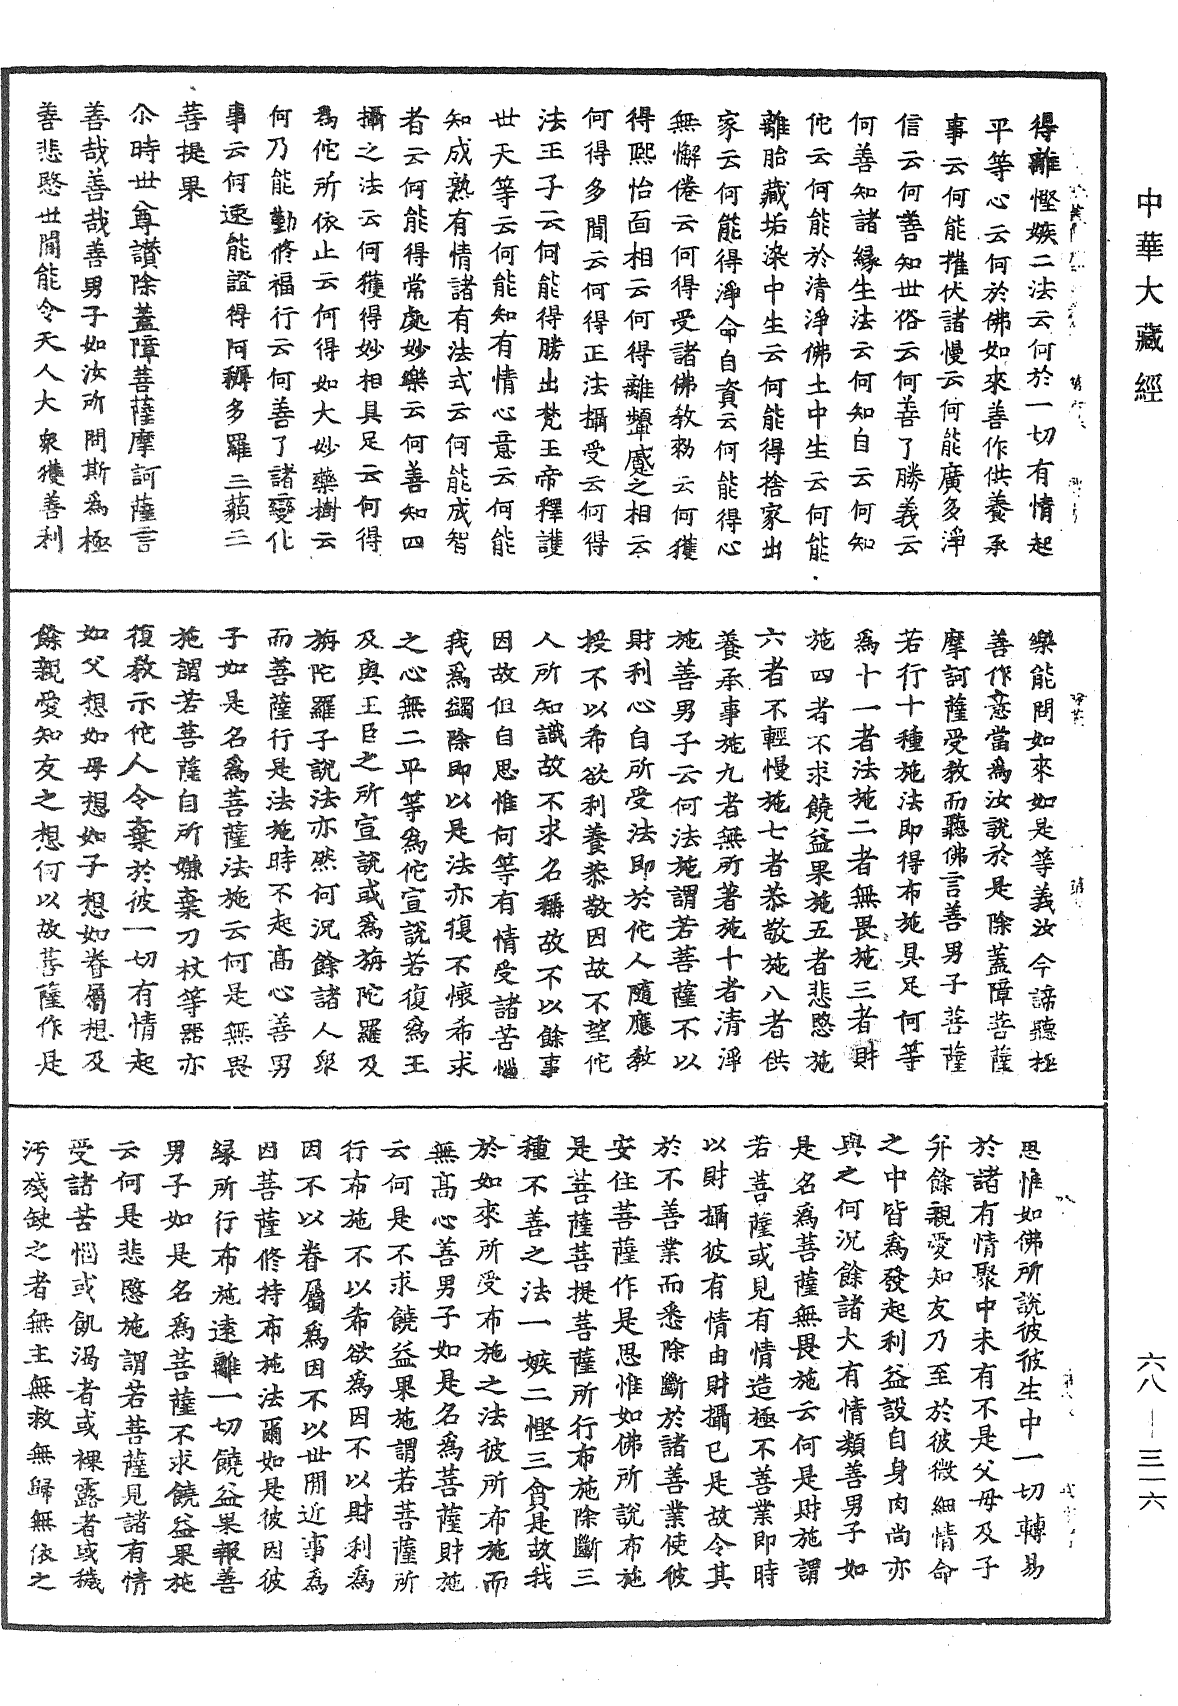 中華大藏經
得離慳嫉二法云何於一切有情起
平等心云何於佛如來善作供養承
事云何能摧伏諸慢云何能廣多淨
信云何善知世俗云何善了勝義云
何善知諸緣生法云何知自云何知
佗云何能於清淨佛土中生云何能
離胎藏垢染中生云何能得捨家出
家云何能得淨命自資云何能得心
無懈倦云何得受諸佛教勑云何獲
得熙怡面相云何得離顰蹙之相云
何得多聞云何得正法攝受云何得
法王子云何能得勝出梵王帝釋護
世天等云何能知有情心意云何能
知成熟有情諸有法式云何能成智
者云何能得常處妙樂云何善知四
攝之法云何獲得妙相具足云何得
為佗所依止云何得如大妙藥樹云
何乃能勤修福行云何善了諸變化
事云何速能證得阿耨多羅三藐三
菩提果
尒時世尊讚除蓋障菩薩摩訶薩言
善哉善哉善男子如汝所問斯為極
善悲愍世間能令天人大衆獲善利
樂能問如來如是等義汝今諦聽極
善作意當為汝說於是除蓋障菩薩
摩訶薩受教而聽佛言善男子菩薩
若行十種施法即得布施具足何等
為十一者法施二者無畏施三者財
施四者不求饒益果施五者悲愍施
六者不輕慢施七者恭敬施八者供
養承事施九者無所著施十者清淨
施善男子云何法施謂若菩薩不以
財利心自所受法即於佗人隨應教
授不以希欲利養恭敬因故不望佗
人所知識故不求名稱故不以餘事
因故但自思惟何等有情受諸苦惱
我為蠲除即以是法亦復不懷希求
之心無二平等為佗宣說若復為王
及與王臣之所宣說或為旃陀羅及
旃陀羅子說法亦然何況餘諸人衆
而菩薩行是法施時不起高心善男
子如是名為菩薩法施云何是無畏
施謂若菩薩自所嫌棄刀杖等器亦
復教示佗人令棄於彼一切有情起
如父想如母想如子想如眷屬想及
餘親愛知友之想何以故菩薩作是
思惟如佛所說彼彼生中一切轉易
於諸有情聚中未有不是父母及子
并餘親愛知友乃至於彼微細情命
之中皆為發起利益設自身肉尚亦
與之何況餘諸大有情類善男子如
是名為菩薩無畏施云何是財施謂
若菩薩或見有情造極不善業即時
以財攝彼有情由財攝已是故令其
於不善業而悉除斷於諸善業使彼
安住菩薩作是思惟如佛所說布施
是菩薩菩提菩薩所行布施除斷三
種不善之法一嫉二慳三貪是故我
於如來所受布施之法彼所布施而
無高心善男子如是名為菩薩財施
云何是不求饒益果施謂若菩薩所
行布施不以希欲為因不以財利為
因不以眷屬為因不以世間近事為
因菩薩修持布施法爾如是彼因彼
緣所行布施遠離一切饒益果報善
男子如是名為菩薩不求饒益果施
云何是悲愍施謂若菩薩見諸有情
受諸苦惱或飢渴者或裸露者或穢
污殘缺之者無主無救無歸無依之
六八—三一六